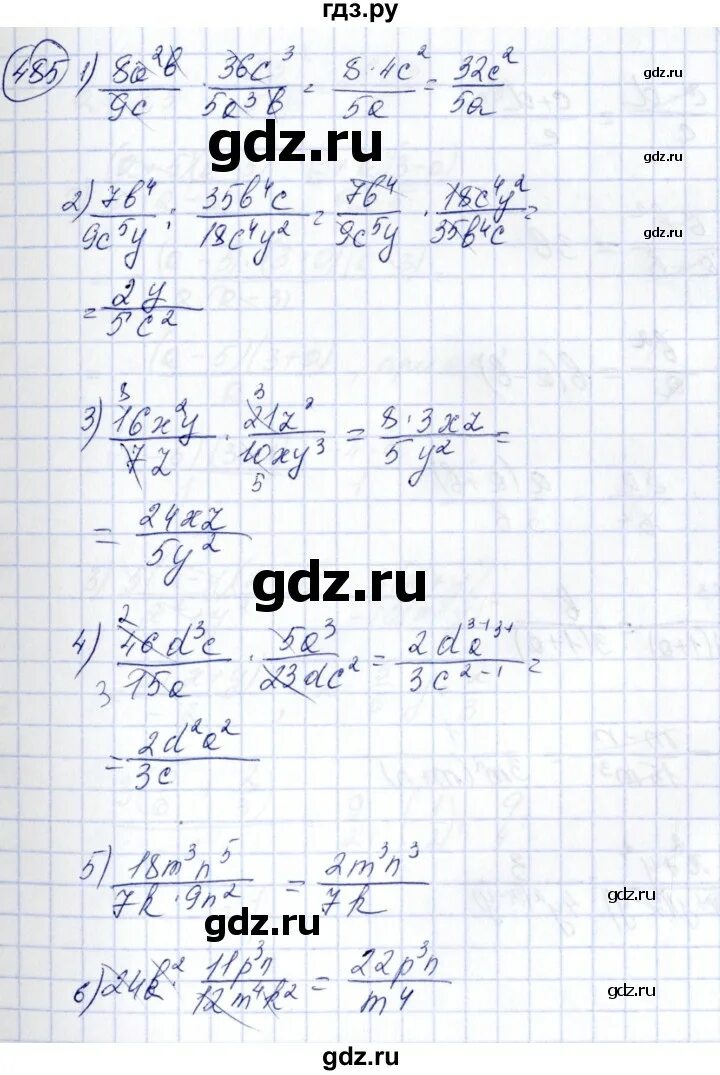 гдз.ру
485 1) 8a²b/9c · 36c³/5a³b = 8·4c²/5a = 32c²/5a
gdz.ru
gdz.ru
gdz.ru
2) 7b⁴/9c⁵y : 35b⁴c/18c⁴y² = 7b⁴/9c⁵y · 18c⁴y²/35b⁴c =
gdz.ru
= 2y/5c²
gdz.ru
3) 8 16x²y/7z · 3 21z²/10xy³ 5 = 8·3xz/5y² =
gdz.ru
= 24xz/5y²
gdz.ru
gdz.ru
4) 2 46d³c/15a 3 · 5a³/23dc² = 2da³⁻¹ ³⁺/3c²⁻¹ =
gdz.ru
= 2d²a²/3c
gdz.ru
5) 18m³n⁵/7k·9n² = 2m³n³/7k
gdz.ru
gdz.ru
6) 24k² · 11p³n/12m⁴k² = 22p³n/m⁴
gdz.ru
gdz.ru